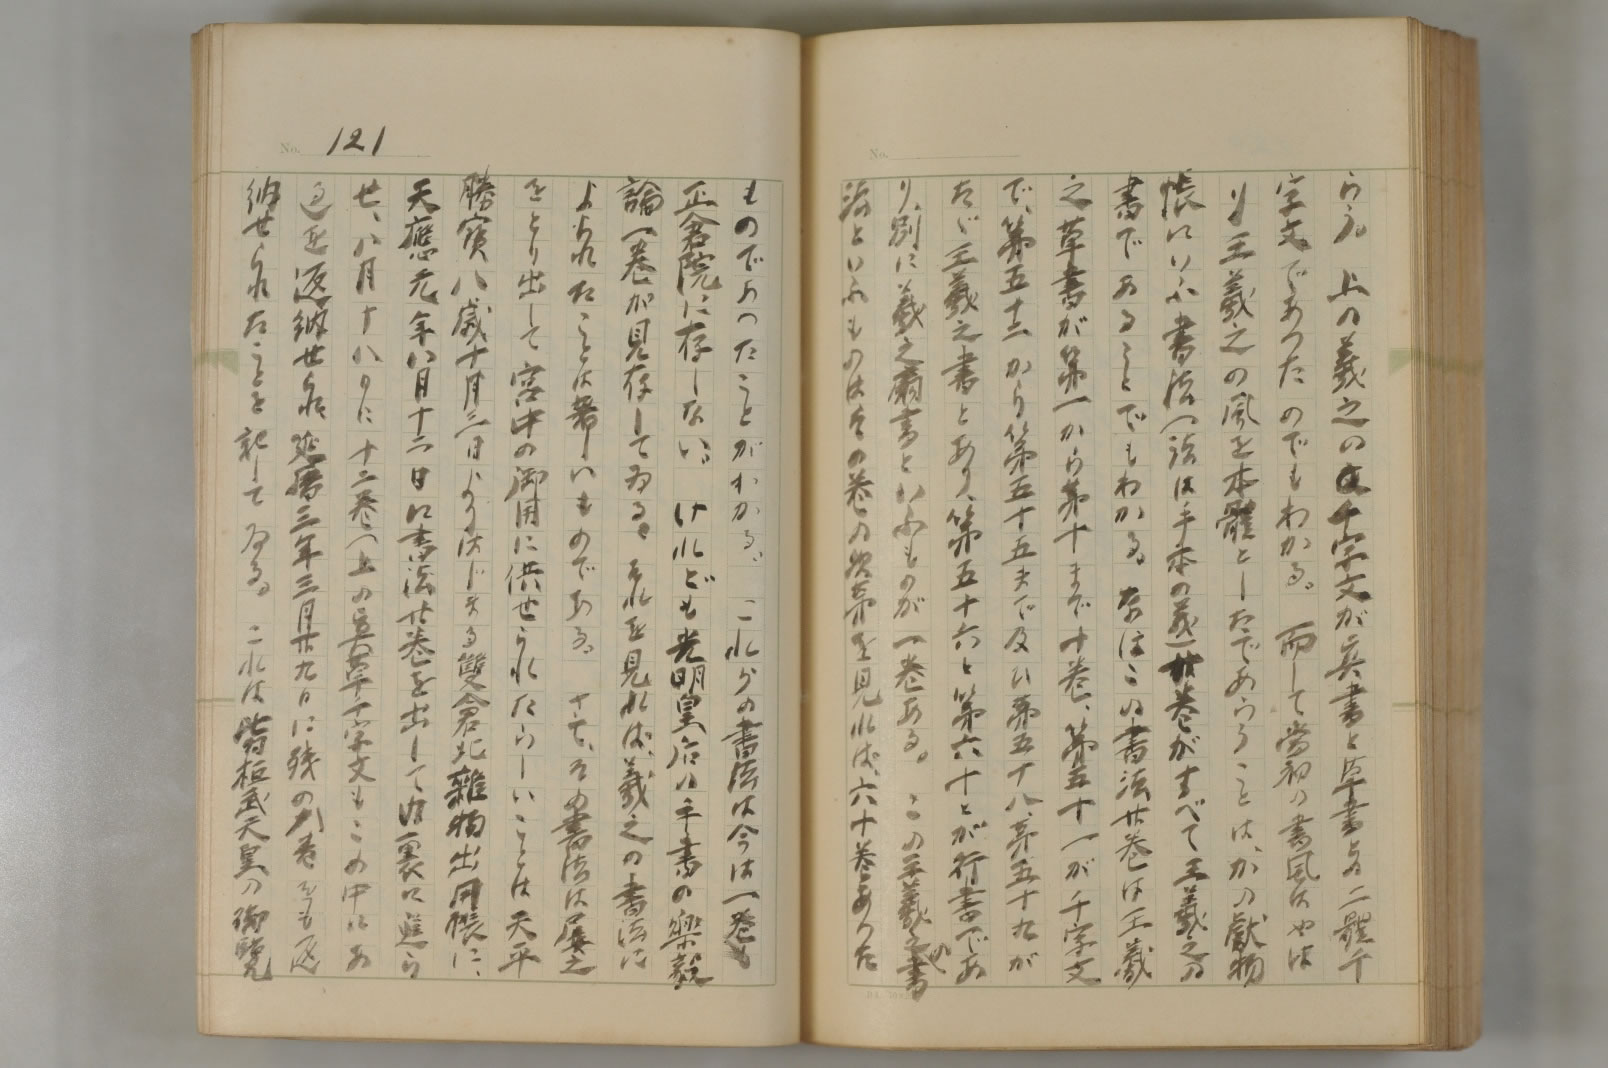 No.
らう。上の羲之の千字文が眞書と草書との二體千
字文であつたのでもわかる。而して當初の書風はやは
り王羲之の風を本體としたであらうことは、かの獻物
帳にいふ書法一 は手本の義一廿巻がすべて王羲之の
書であることでもわかる。なほこの書法廿巻は王羲
之草書が第一から第十まで十巻、第五十一が千字文
で、第五十二から第五十五まで及び第五十八、第五十九が
たゞ王羲之書とあり、第五十六と第六十とが行書であ
り、別に羲之扇書といふものが一巻ある。この王羲之の書
法といふものはその巻の次第を見れば、六十巻あつた
No. 121
ものであつたことがわかる。これらの書法は今は一巻も
正倉院に存しない。けれども光明皇后の手書の樂毅
論一巻が見存してゐる。それを見れば、羲之の書法に
よられたことは著しいものである。さて、その書法は屢之
をとり出して宮中の御用に供せられたらしいことは天平
勝寶八歳十月三日より はじまる雙倉北雜物出用帳に、
天應元年八月十二日に書法廿巻を出して内裏に進ら
せ、八月十八日に十二巻(上の眞草千字文もこの中にあ
る)を返納せられ延暦三年三月廿九日に殘の八巻をも返
納せられたことを記してゐる。これは皆桓武天皇の御覽